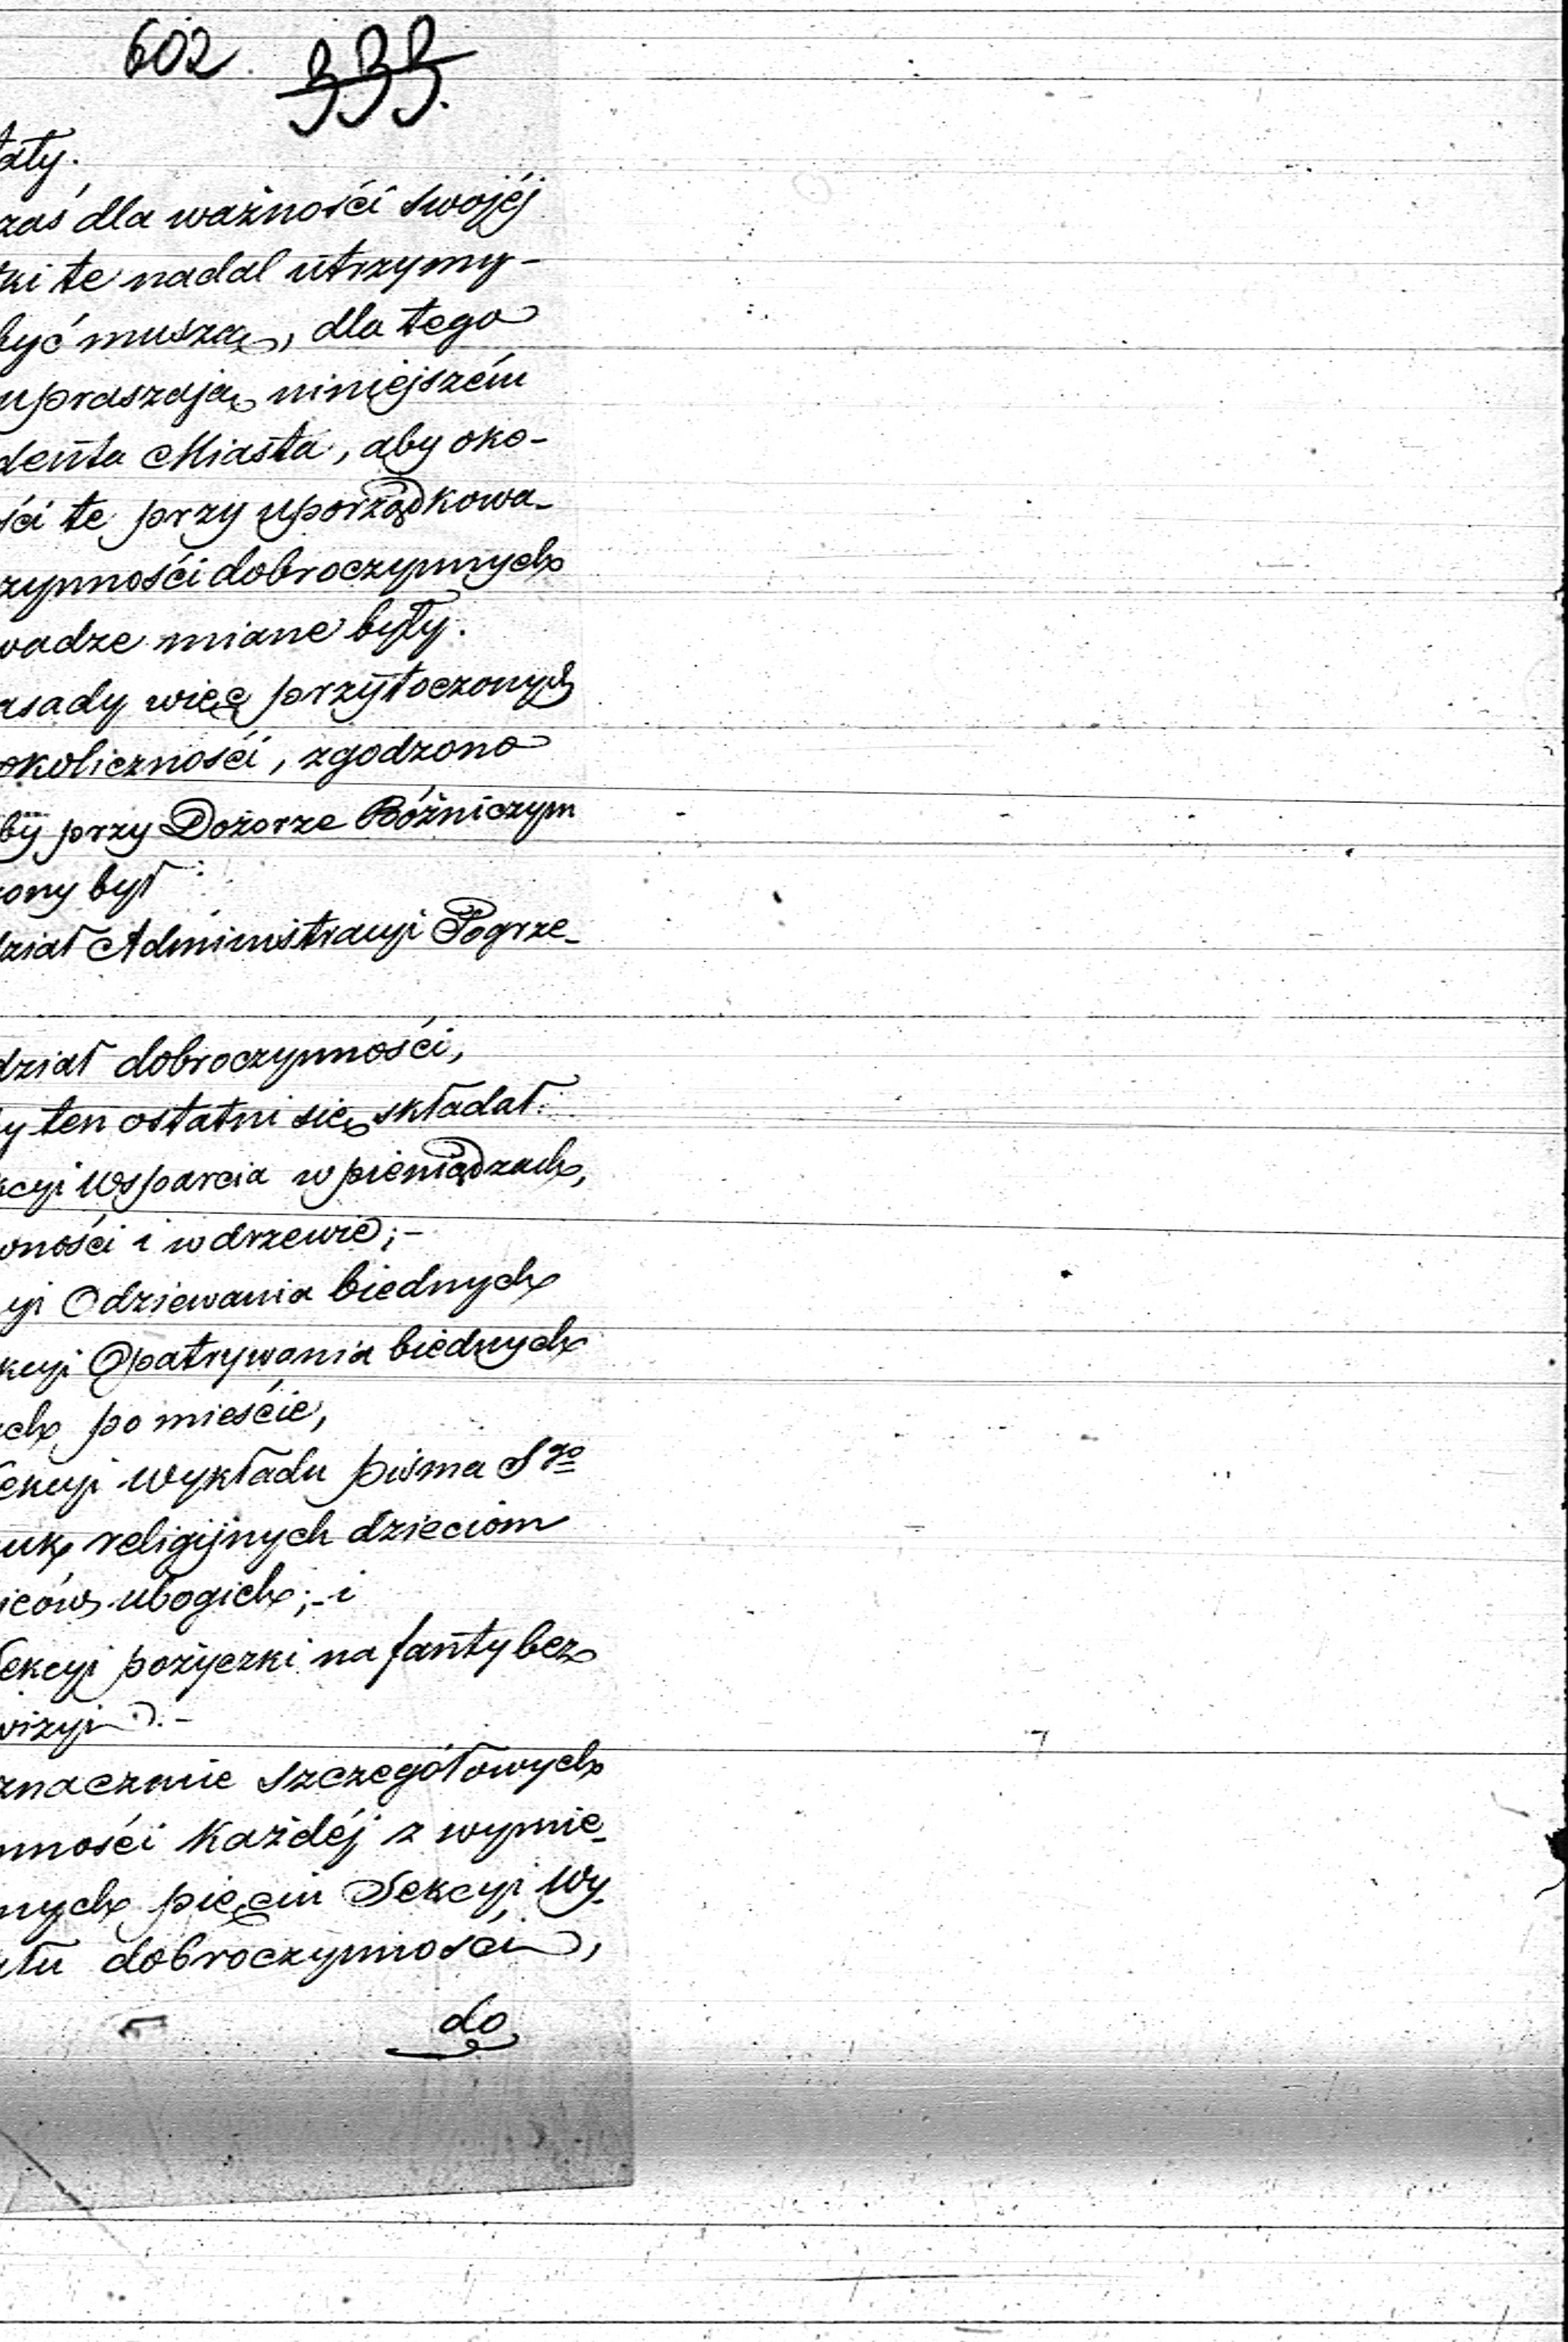 602. 333.
taty.
zaś dla ważności swojéj
ki te nadal utrzymy-
być muszą, dla tego
upraszają niniejszém
denta Miasta, aby oko-
ści te przy uporządkowa-
zynności dobroczynnych
wadze miane były.
asady więc przytoczonych
okoliczności, zgodzono
by przy Dozorze Bóżniczym
ony był
dział Administracyi Pogrze-
dział dobroczynności,
y ten ostatni się składał:
kcyi Wsparcia w pieniądzach,
wności i w drzewie;-
yi Odziewania biednych
kcyi Opatrywania biednych
ych po mieście,
Sekcyi Wykładu pisma Sgo
uk religijnych dzieciom
iców ubogich;- i
Sekcyi pożyczki na fanty bez
wizyi.-
znacznie szczegółowych
nności każdéj z wymie-
nych pięciu Sekcyi Wy-
ału dobroczynności,
do